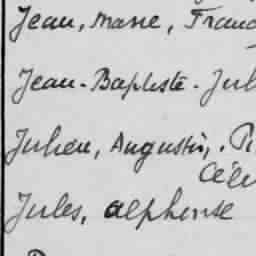 Jean, Marie, Franç
Jean-Baptiste - Jul
Julien, Augustin, . Pi
Céle
Jules, alphonse